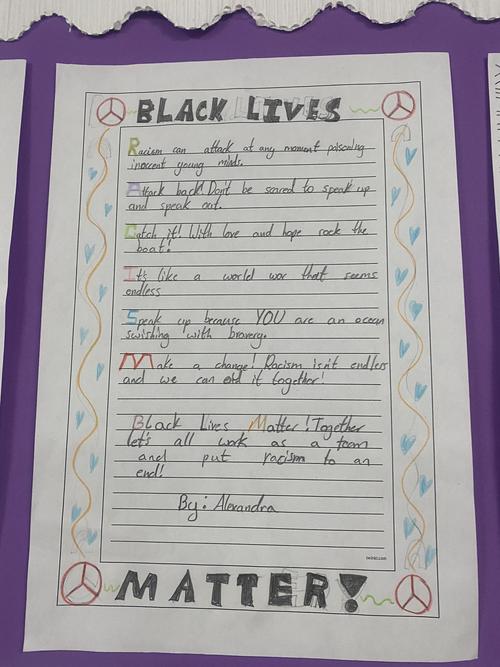 BLACK LIVES
Racism can attack at any moment poisoning
innocent young minds.
Attack back! Don't be scared to speak up
and speak out.
Catch it! With love and hope rock the
boat!
It's like a world war that seems
endless
Speak up because YOU are an ocean
swishing with bravery.
Make a change! Racism isn't endless
and we can end it together!
Black Lives Matter! Together
let's all work as a team
and put racism to an
end!
By: Alexandra
twinkl.com
MATTER!